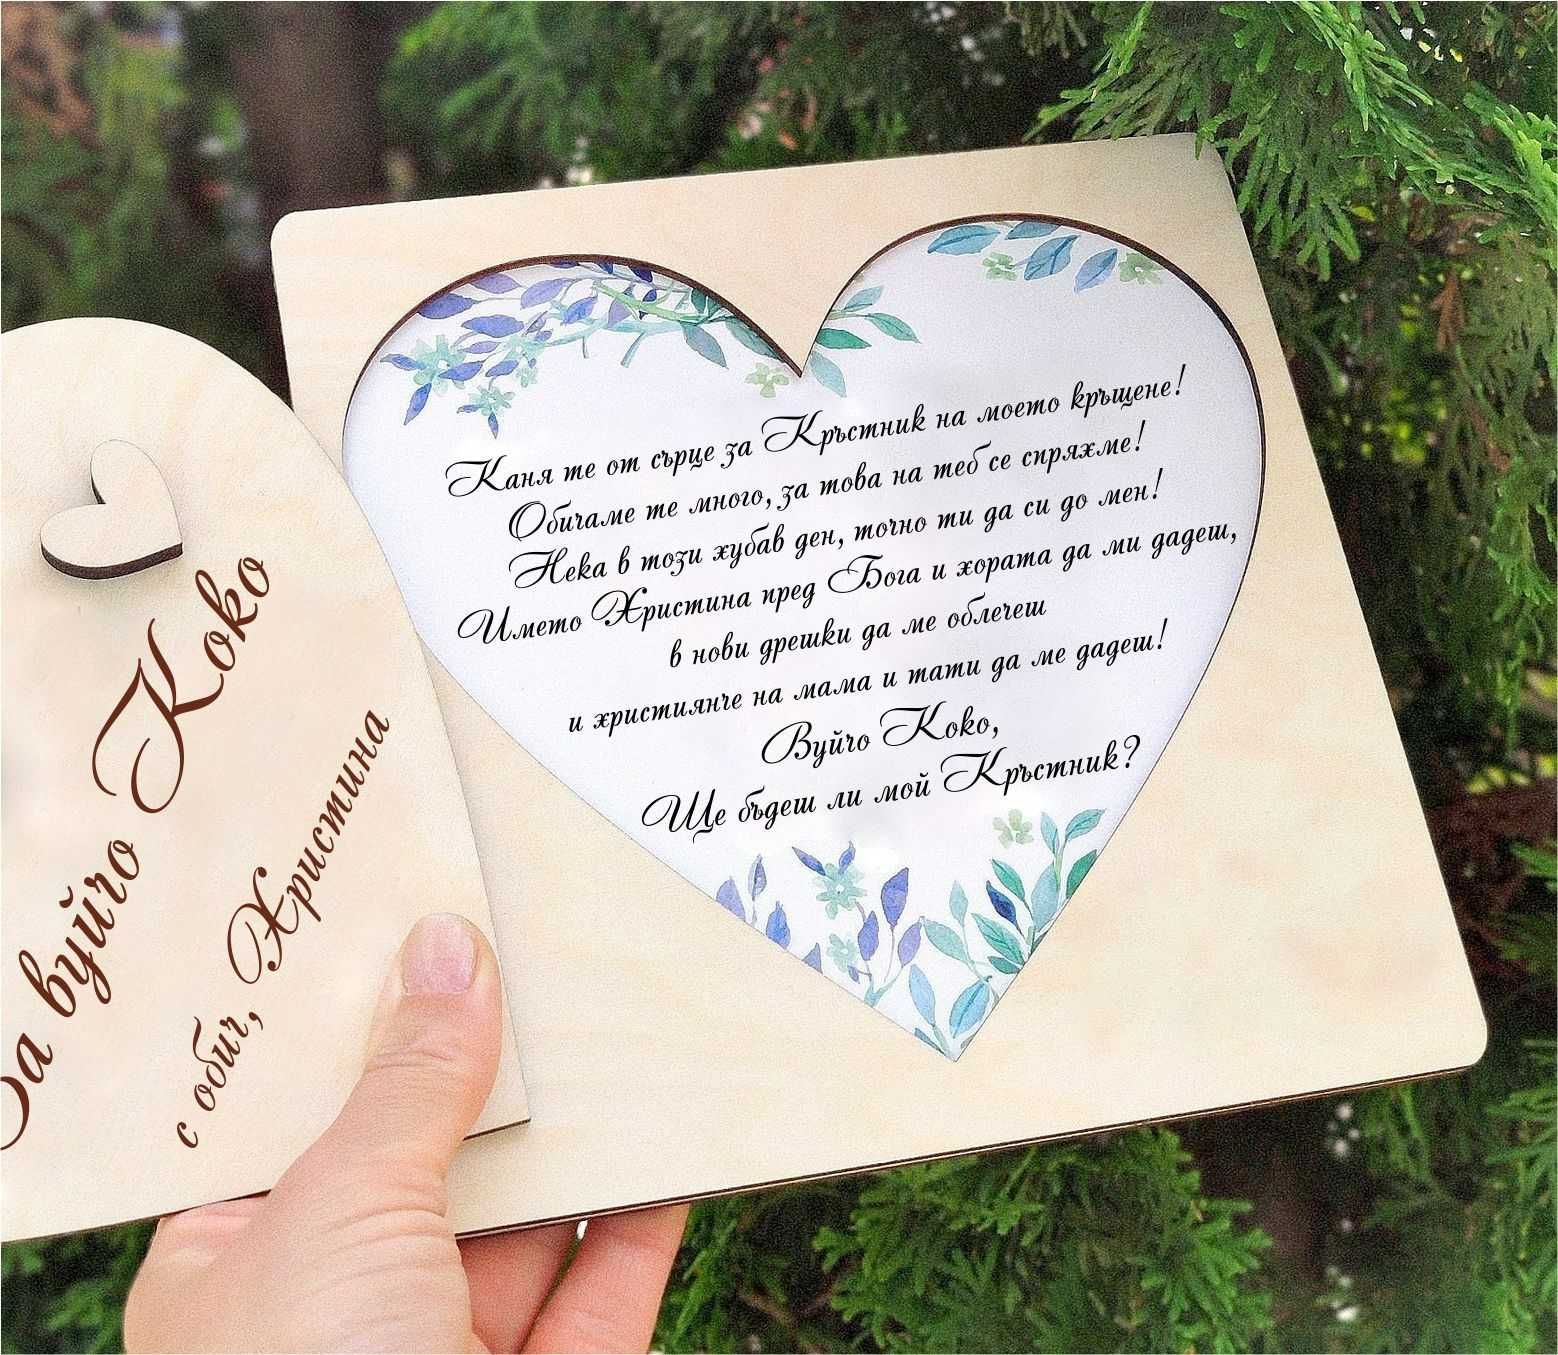 За вуйчо Коко
с обич, Християна
Каня те от сърце за Кръстник на моето кръщене!
Обичаме те много, за това на теб се спряхме!
Нека в този хубав ден, точно ти да си до мен!
Името Християна пред Бога и хората да ми дадеш,
в нови дрешки да ме облечеш
и християнче на мама и тати да ме дадеш!
Вуйчо Коко,
Ще бъдеш ли мой Кръстник?